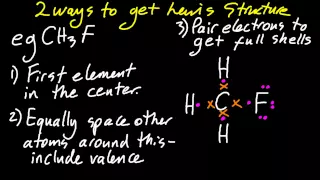 2 ways to get Lewis Structure
eg CH3F
3) Pair electrons to
get full shells
1) First element
in the center.
2) Equally space other
atoms around this-
include valence
H
H C F
H